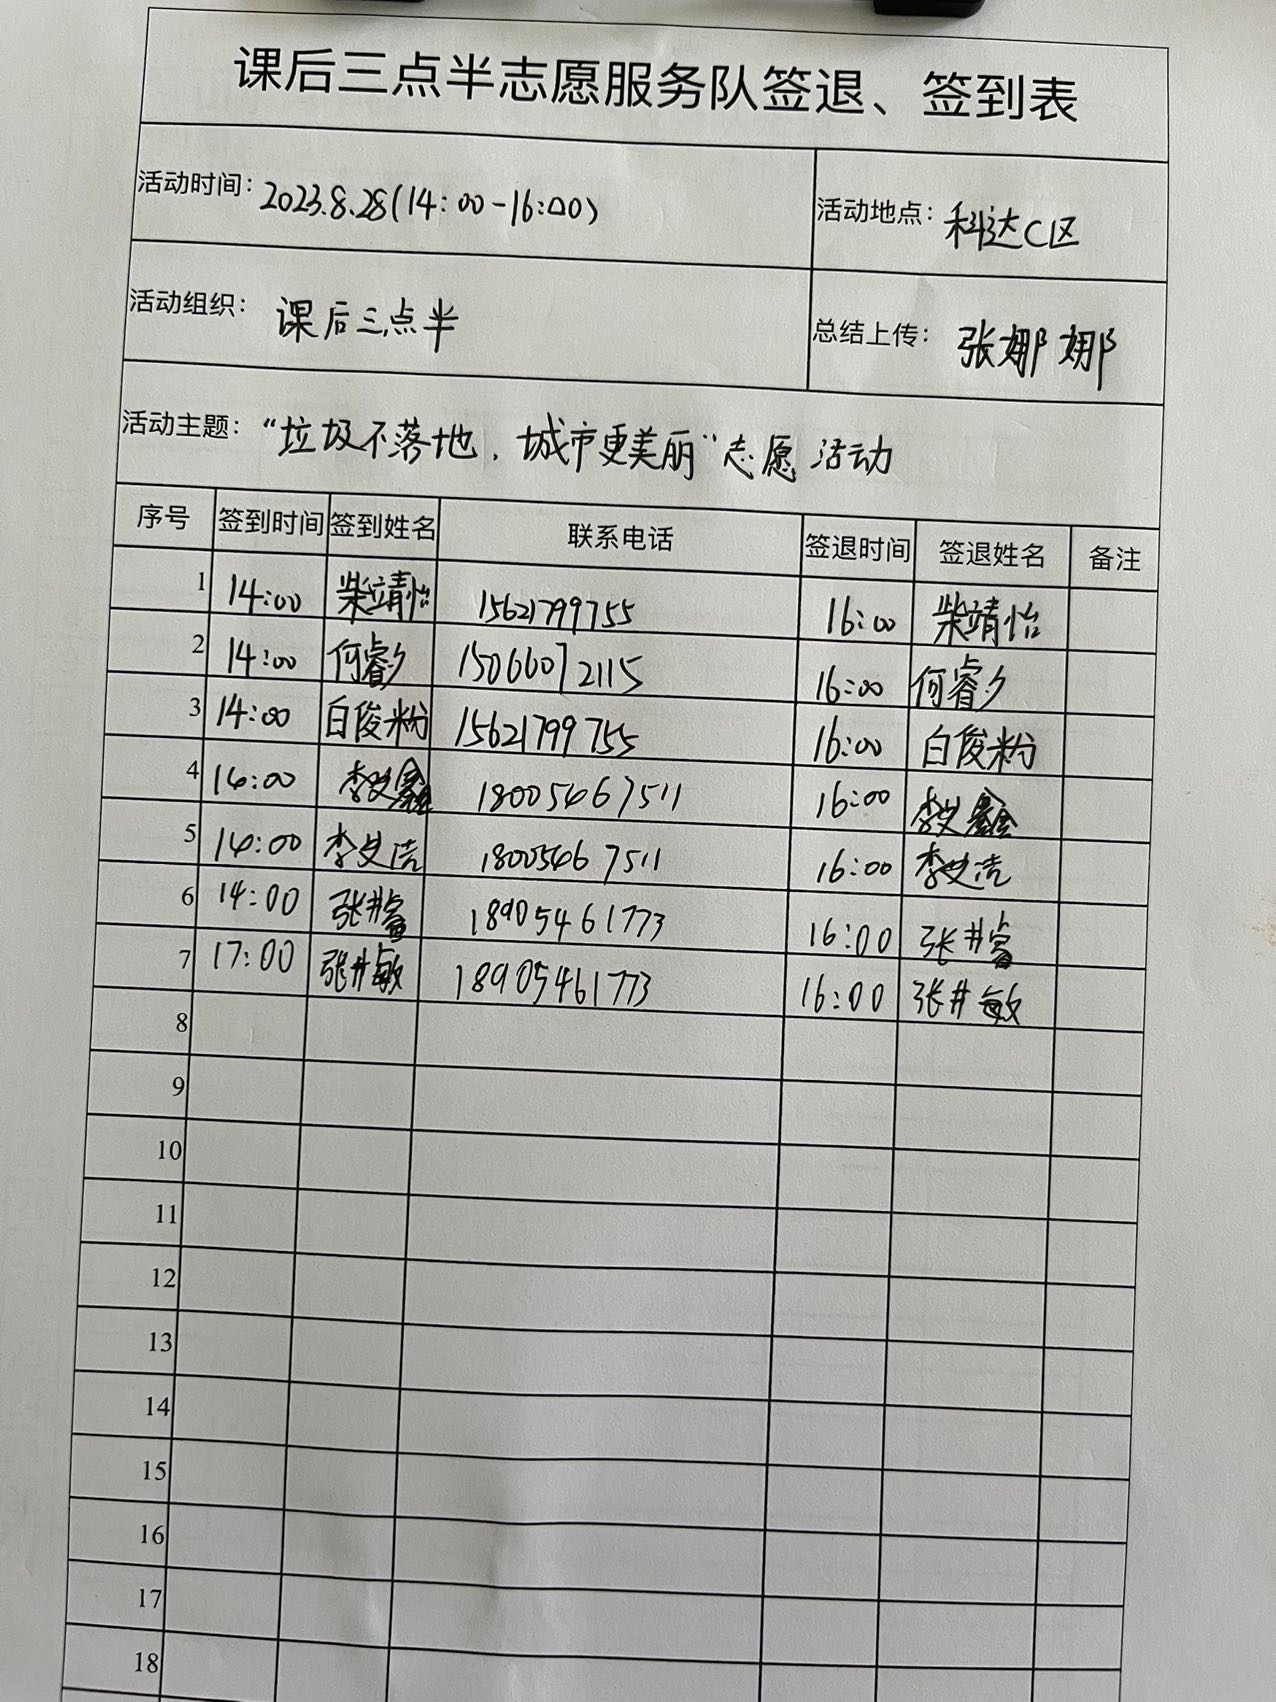 课后三点半志愿服务队签退、签到表
活动时间：2023.8.28(14:00-16:00) 活动地点：科达C区
活动组织：课后三点半 总结上传：张娜娜
活动主题：“垃圾不落地，城市更美丽”志愿活动
序号 签到时间 签到姓名 联系电话 签退时间 签退姓名 备注
1 14:00 柴靖怡 15621799755 16:00 柴靖怡
2 14:00 何睿夕 15066072115 16:00 何睿夕
3 14:00 白俊粉 15621799755 16:00 白俊粉
4 14:00 李文鑫 18005467511 16:00 李文鑫
5 14:00 李文浩 18005467511 16:00 李文浩
6 14:00 张井睿 18905461773 16:00 张井睿
7 17:00 张井敏 18905461773 16:00 张井敏
8
9
10
11
12
13
14
15
16
17
18